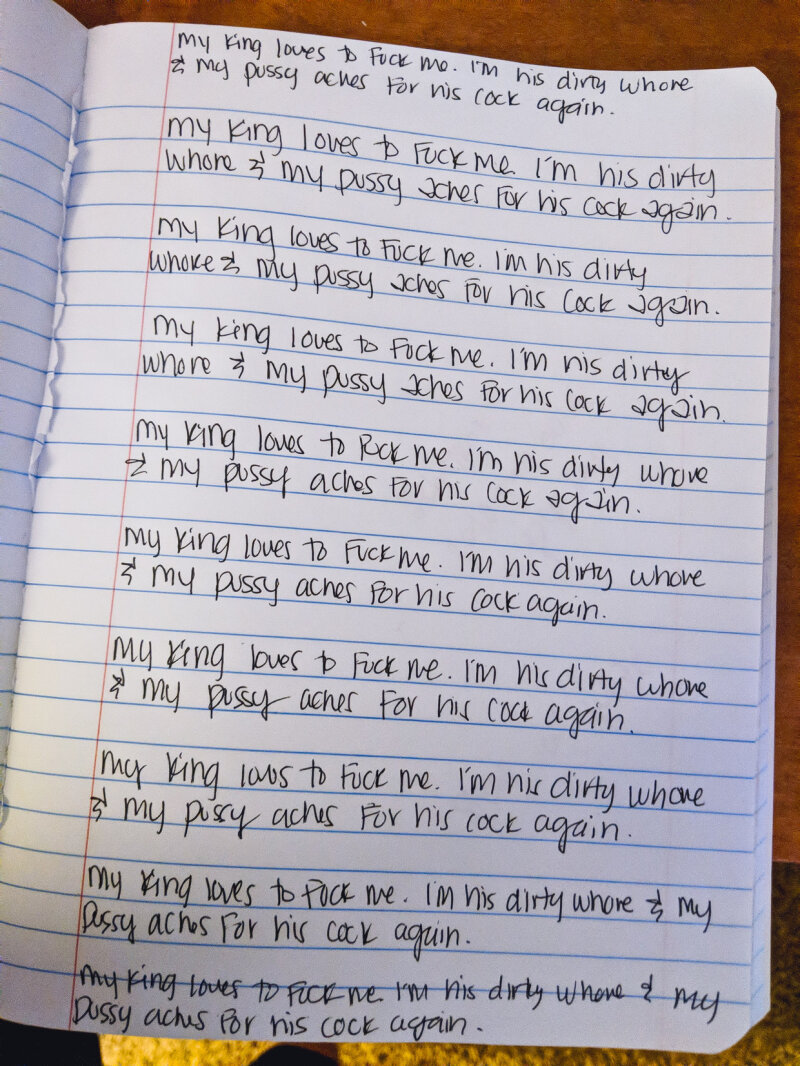 my king loves to fuck me. I'm his dirty whore
& my pussy aches for his cock again.
my king loves to fuck me. I'm his dirty
whore & my pussy aches for his cock again.
my king loves to fuck me. I'm his dirty
whore & my pussy aches for his cock again.
my king loves to fuck me. I'm his dirty
whore & my pussy aches for his cock again.
my king loves to fuck me. I'm his dirty whore
& my pussy aches for his cock again.
my king loves to fuck me. I'm his dirty whore
& my pussy aches for his cock again.
my king loves to fuck me. I'm his dirty whore
& my pussy aches for his cock again.
my king loves to fuck me. I'm his dirty whore
& my pussy aches for his cock again.
my king loves to fuck me. I'm his dirty whore & my
pussy aches for his cock again.
my king loves to fuck me. I'm his dirty whore & my
pussy aches for his cock again.